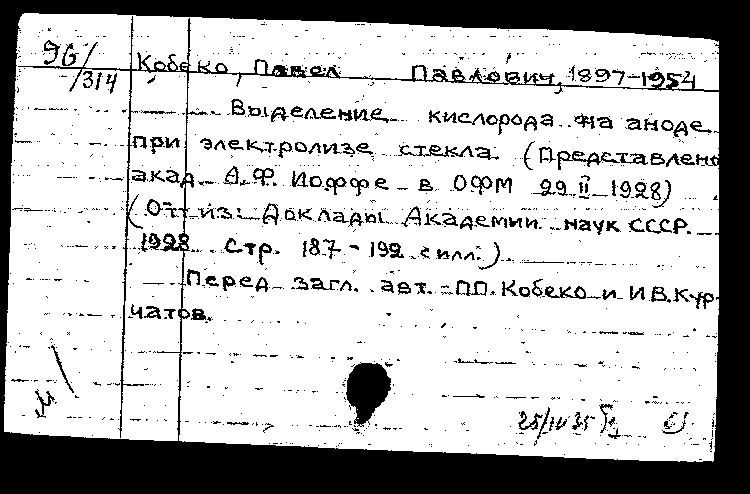 96/
/314
Кобеко, Павел Павлович, 1897-1954
Выделение кислорода на аноде
при электролизе стекла. (Представлено
акад. А.Ф. Иоффе в ОФМ 29 II 1928)
(Отт из: Доклады Академии наук СССР.
1928 стр. 187-192 с илл.)
Перед загл. авт.: П.П. Кобеко и И.В. Кур-
чатов.